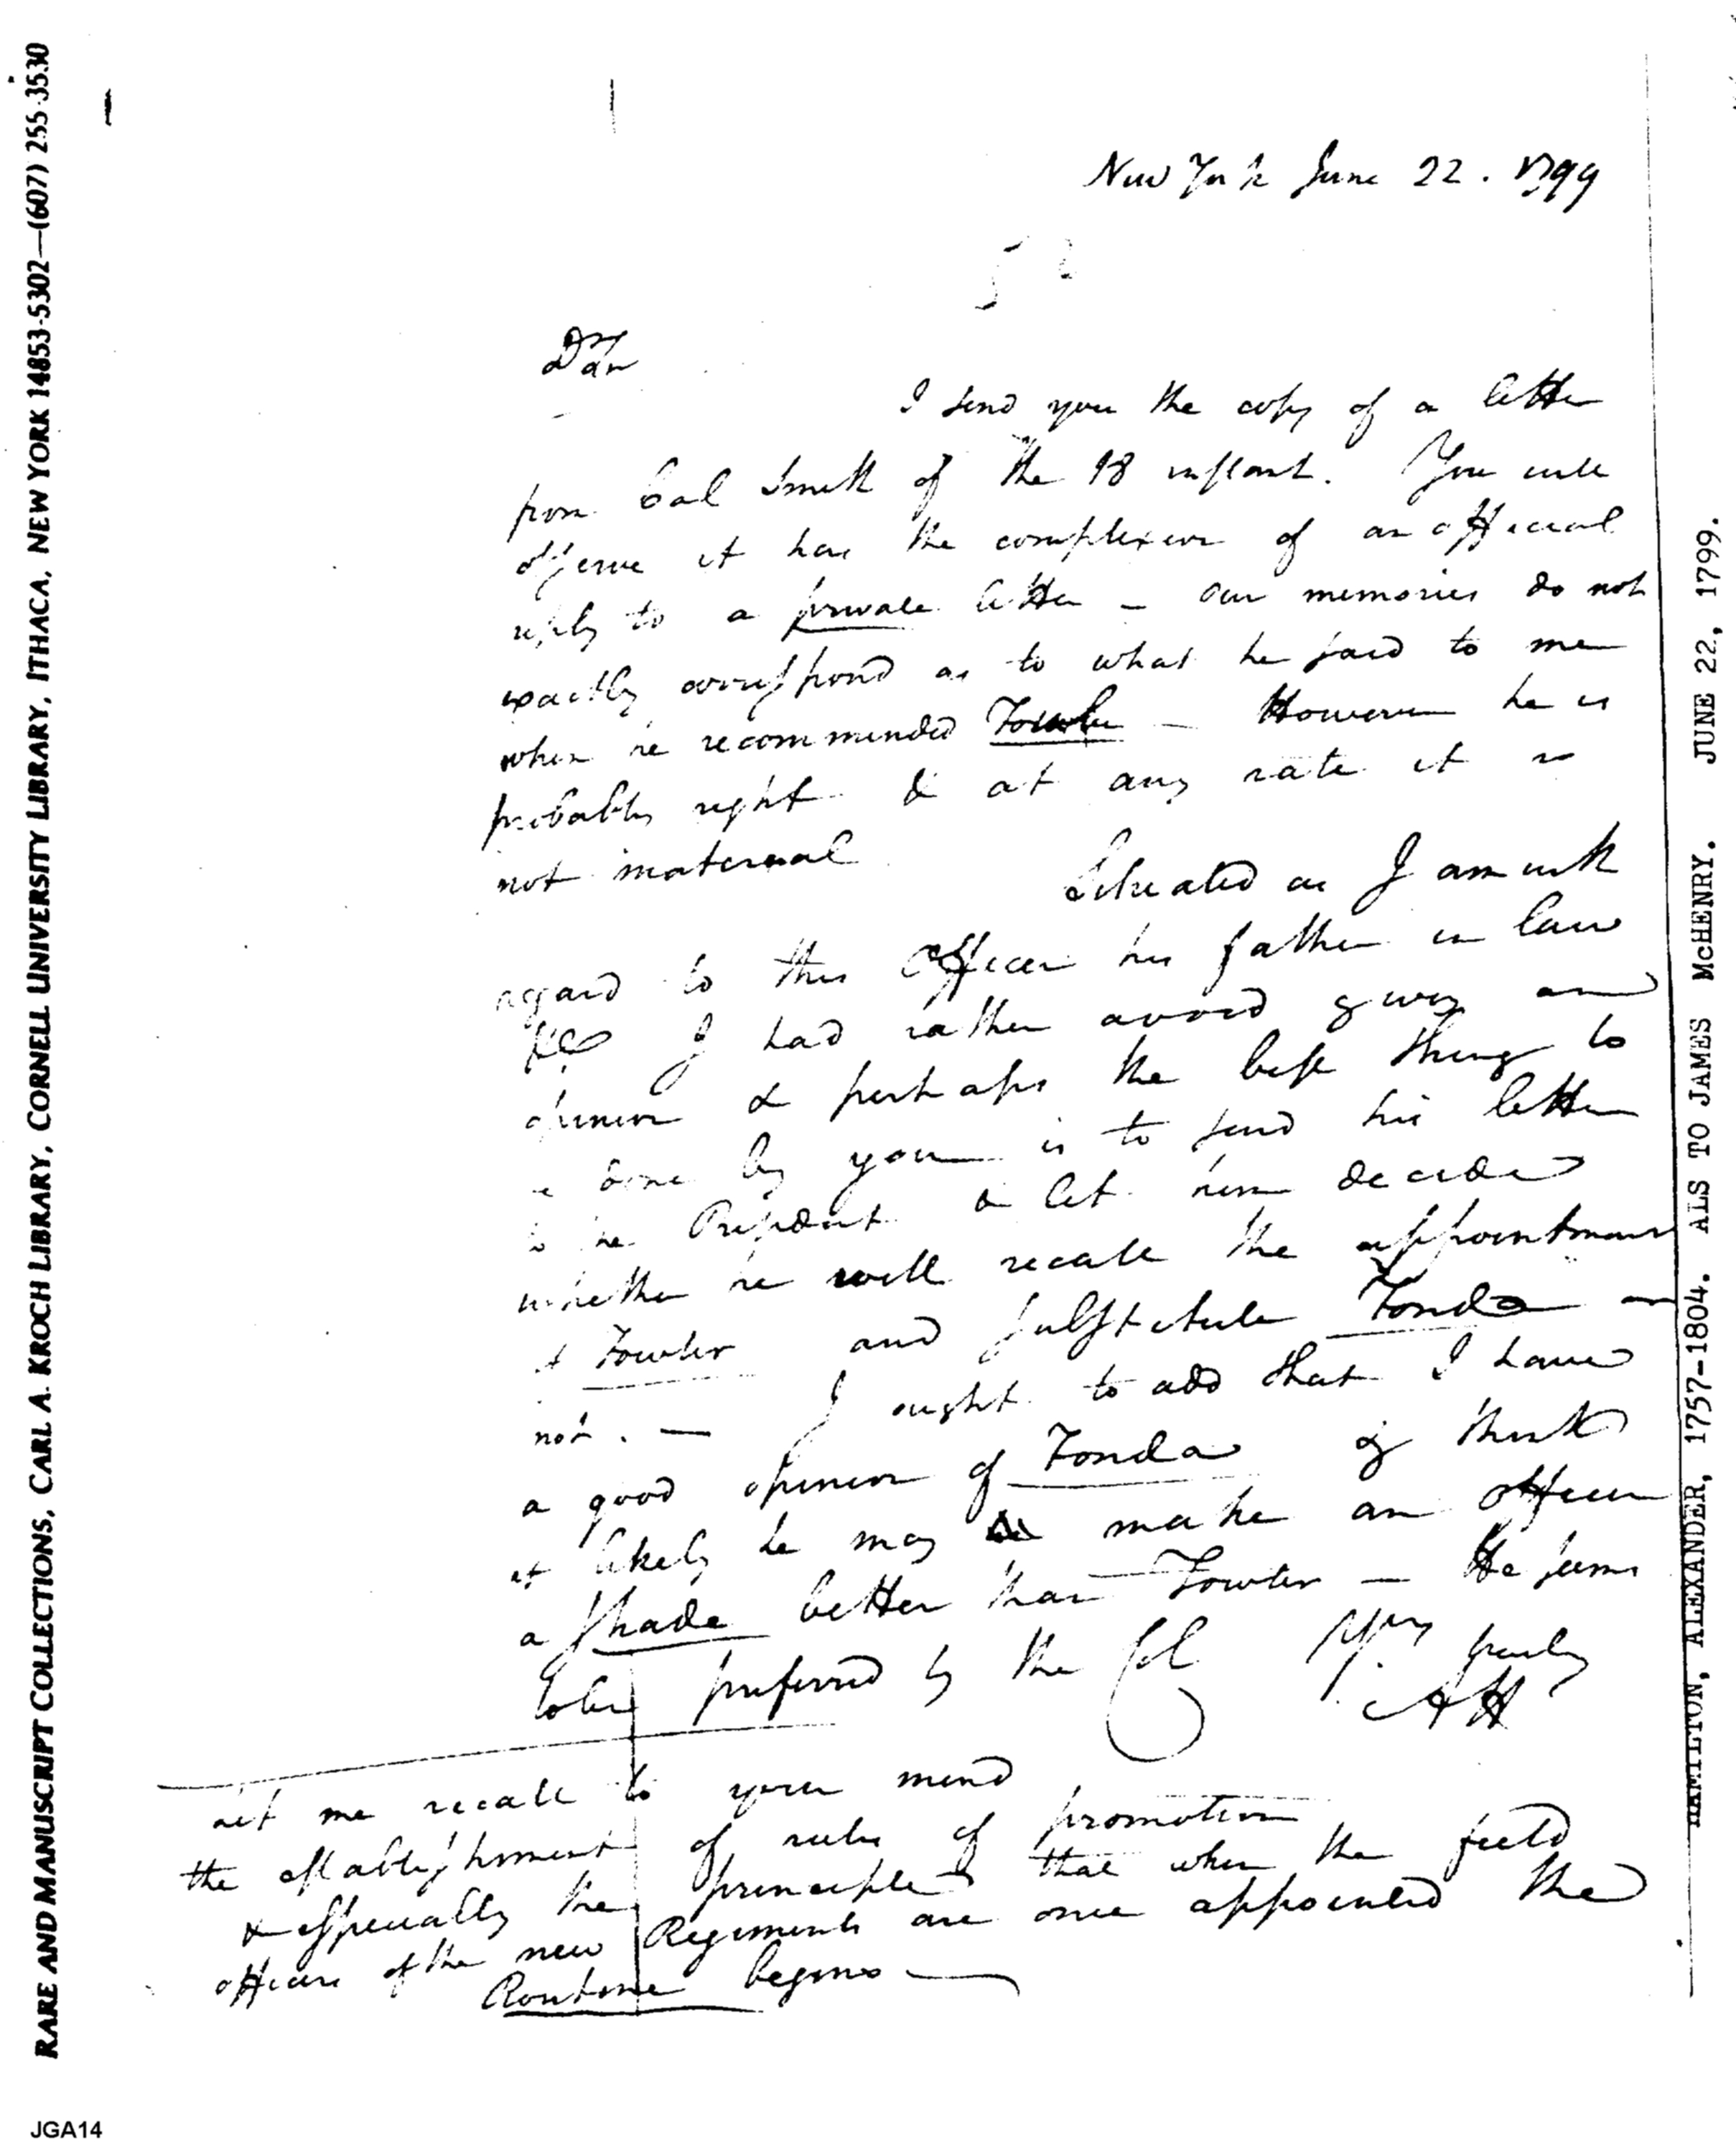 RARE AND MANUSCRIPT COLLECTIONS, CARL A. KROCH LIBRARY, CORNELL UNIVERSITY LIBRARY, ITHACA, NEW YORK 14853-5302—(607) 255-3530
New York June 22. 1799
Dr Sir
I send you the copy of a letter
from Col Smith of the 18 instant. You will
observe it has the complexion of an official
reply to a private letter – Our memories do not
exactly correspond as to what he said to me
when he recommended Fowler – However he is
probably right & at any rate it is
not material
Situated as I am with
regard to this Officer his father in law
&c I had rather avoid giving an
opinion & perhaps the best thing to
be done by you is to send his letter
to the President & let him decide
whether he will recall the appointment
of Fowler and substitute Fonda or
not. — I ought to add that I have
a good opinion of Fonda & think
it likely he may make an officer
a shade better than Fowler — He seems
to be preferred by the Col Yrs truly
AH
Let me recall to your mind
the establishment of rules of promotion
& especially the principle that when the field
officers of the new Regiments are once appointed the
Routine begins —
HAMILTON, ALEXANDER, 1757-1804. ALS TO JAMES McHENRY. JUNE 22, 1799.
JGA14